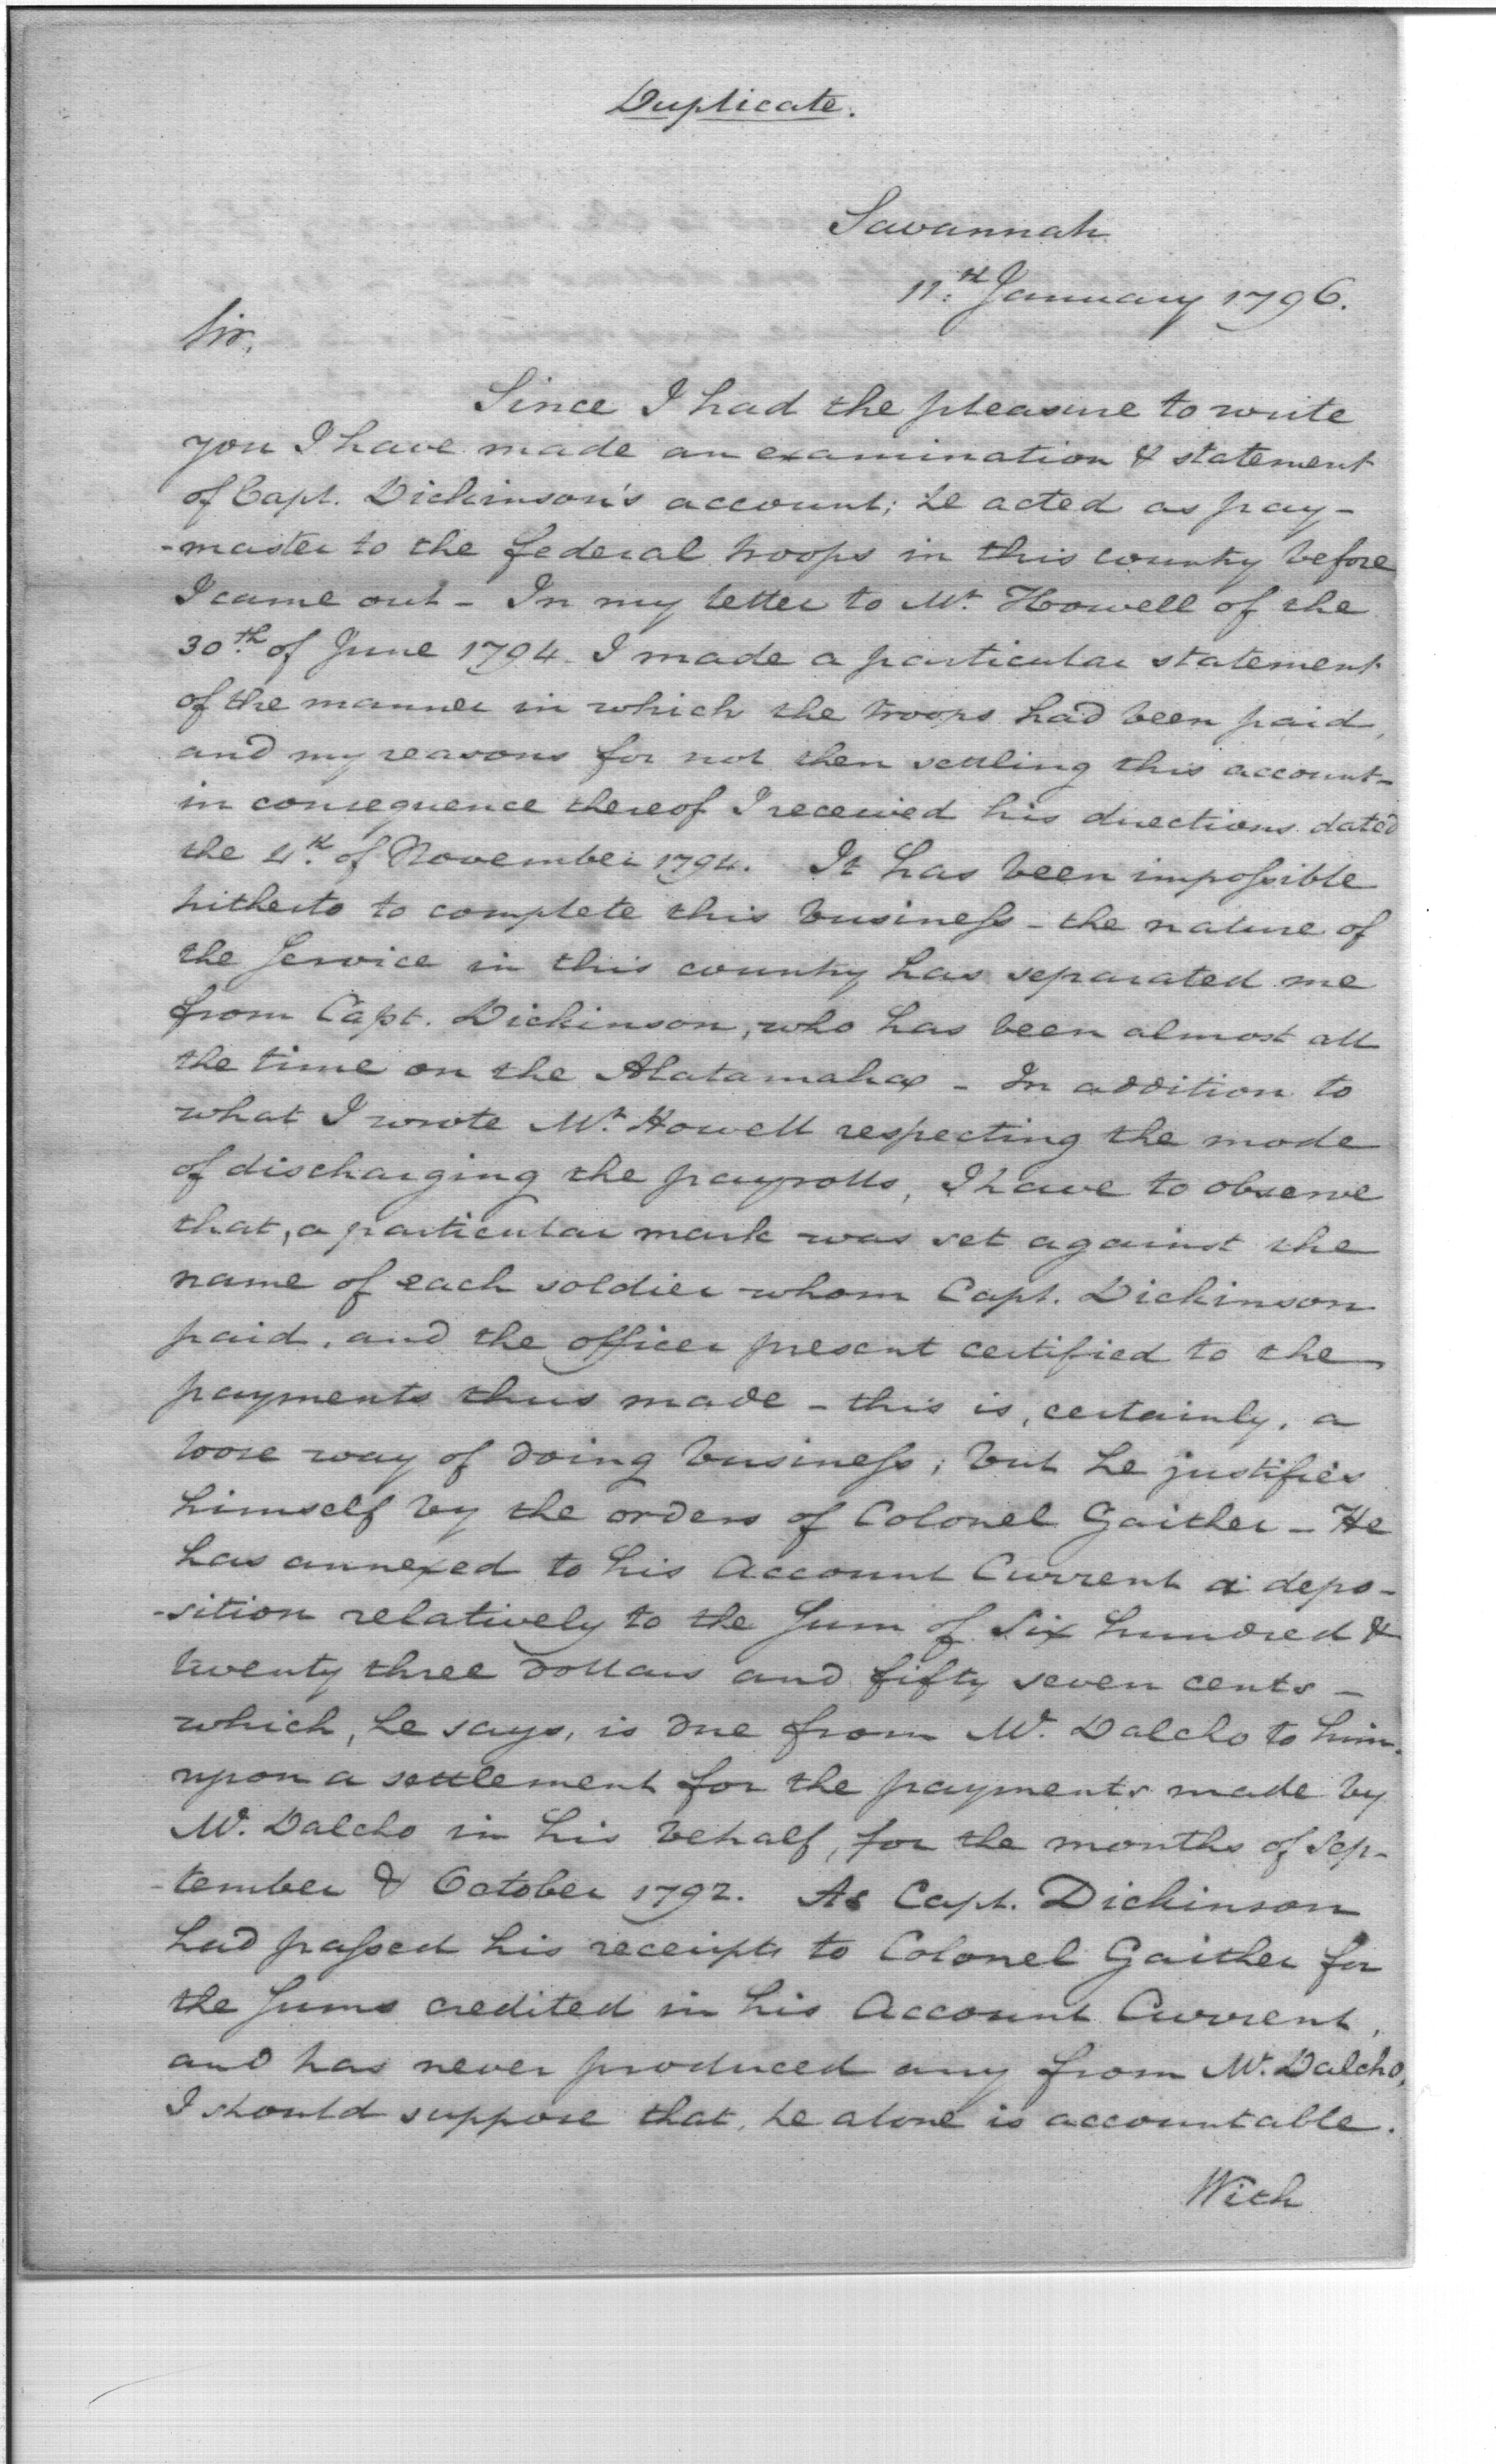 Duplicate.
Savannah
11.th January 1796.
Sir,
Since I had the pleasure to write
you I have made an examination & statement
of Capt. Dickinson's account; he acted as pay-
-master to the federal troops in this country before
I came out - In my letter to Mr. Howell of the
30.th of June 1794. I made a particular statement
of the manner in which the troops had been paid,
and my reasons for not then settling this account -
in consequence thereof I received his directions dated
the 4.th of November 1794. It has been impossible
hitherto to complete this business - the nature of
the Service in this country has separated me
from Capt. Dickinson, who has been almost all
the time on the Alatamaha - In addition to
what I wrote Mr. Howell respecting the mode
of discharging the payrolls, I have to observe
that, a particular mark was set against the
name of each soldier whom Capt. Dickinson
paid, and the officer present certified to the
payments thus made - this is, certainly, a
loose way of doing business; but he justifies
himself by the orders of Colonel Gaither - He
has annexed to his Account Current a depo-
-sition relatively to the Sum of Six hundred &
twenty three dollars and fifty seven cents -
which, he says, is due from Mr. Dalcho to him
upon a settlement for the payments made by
Mr. Dalcho in his behalf, for the months of Sep-
-tember & October 1792. As Capt. Dickinson
had passed his receipts to Colonel Gaither for
the Sums credited in his Account Current,
and has never produced any from Mr. Dalcho,
I should suppose that, he alone is accountable.
With